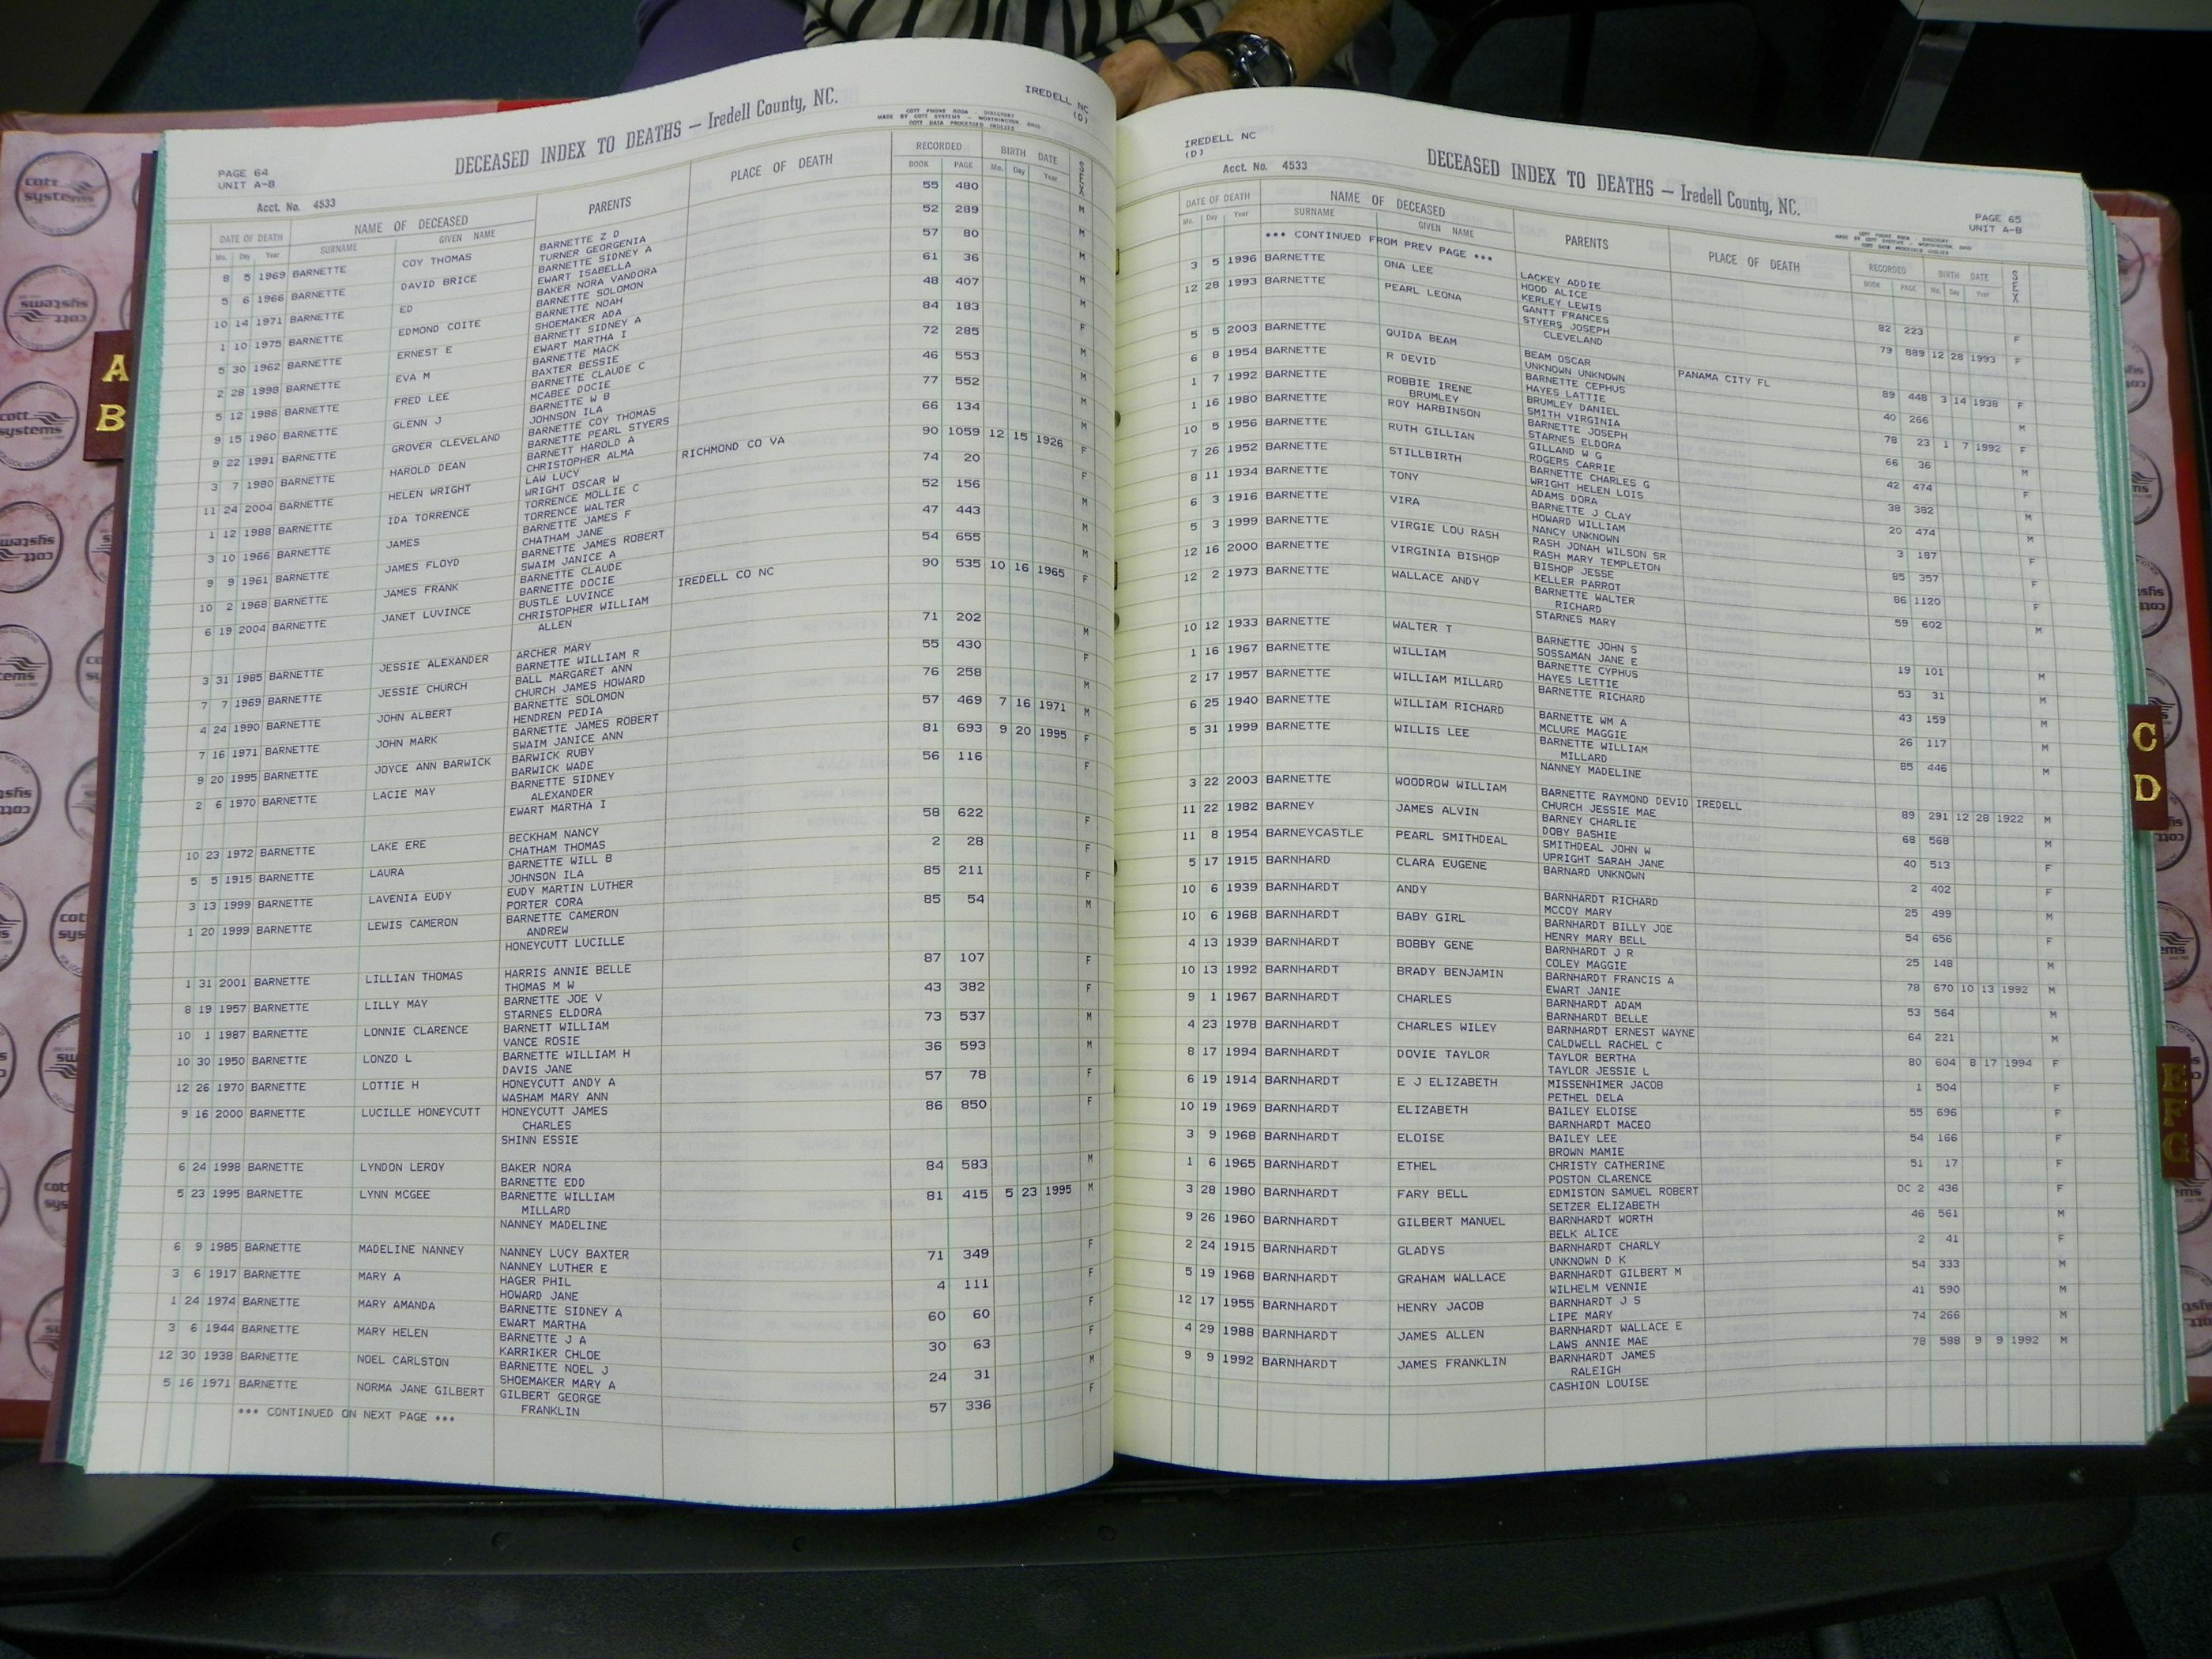 IREDELL NC
(D)
DECEASED INDEX TO DEATHS — Iredell County, NC.
COTT PHONE BOOK - DIRECTORY
MADE BY COTT SYSTEMS - WORTHINGTON, OHIO
COTT DATA PROCESSED INDEXES
PAGE 64
UNIT A-B
Acct. No. 4533
DATE OF DEATH NAME OF DECEASED PARENTS PLACE OF DEATH RECORDED BIRTH DATE SEX
Mo. Day Year SURNAME GIVEN NAME BOOK PAGE Mo. Day Year
8 5 1969 BARNETTE COY THOMAS BARNETTE Z D 55 480 M
TURNER GEORGENIA
5 6 1966 BARNETTE DAVID BRICE BARNETTE SIDNEY A 52 289 M
EWART ISABELLA
10 14 1971 BARNETTE ED BAKER NORA VANDORA 57 80 M
BARNETTE SOLOMON
1 10 1975 BARNETTE EDMOND COITE BARNETTE NOAH 61 36 M
SHOEMAKER ADA
5 30 1962 BARNETTE ERNEST E BARNETT SIDNEY A 48 407 M
EWART MARTHA I
2 28 1998 BARNETTE EVA M BARNETTE MACK 84 183 F
BAXTER BESSIE
5 12 1986 BARNETTE FRED LEE BARNETTE CLAUDE C 72 285 M
MCABEE DOCIE
9 15 1960 BARNETTE GLENN J BARNETTE W B 46 553 M
JOHNSON ILA
9 22 1991 BARNETTE GROVER CLEVELAND BARNETTE COY THOMAS 77 552 M
BARNETTE PEARL STYERS
3 7 1980 BARNETTE HAROLD DEAN BARNETT HAROLD A 66 134 M
CHRISTOPHER ALMA
11 24 2004 BARNETTE HELEN WRIGHT LAW LUCY RICHMOND CO VA 90 1059 12 15 1926 F
WRIGHT OSCAR W
1 12 1988 BARNETTE IDA TORRENCE TORRENCE MOLLIE C 74 20 F
TORRENCE WALTER
3 10 1966 BARNETTE JAMES BARNETTE JAMES F 52 156 M
CHATHAM JANE
9 9 1961 BARNETTE JAMES FLOYD BARNETTE JAMES ROBERT 47 443 M
SWAIM JANICE A
10 2 1968 BARNETTE JAMES FRANK BARNETTE CLAUDE 54 655 M
BARNETTE DOCIE
6 19 2004 BARNETTE JANET LUVINCE BUSTLE LUVINCE IREDELL CO NC 90 535 10 16 1965 F
CHRISTOPHER WILLIAM
ALLEN
3 31 1985 BARNETTE JESSIE ALEXANDER ARCHER MARY 71 202 M
BARNETTE WILLIAM R
7 7 1969 BARNETTE JESSIE CHURCH BALL MARGARET ANN 55 430 F
CHURCH JAMES HOWARD
4 24 1990 BARNETTE JOHN ALBERT BARNETTE SOLOMON 76 258 M
HENDREN PEDIA
7 16 1971 BARNETTE JOHN MARK BARNETTE JAMES ROBERT 57 469 7 16 1971 M
SWAIM JANICE ANN
9 20 1995 BARNETTE JOYCE ANN BARWICK BARWICK RUBY 81 693 9 20 1995 F
BARWICK WADE
2 6 1970 BARNETTE LACIE MAY BARNETTE SIDNEY 56 116 F
ALEXANDER
EWART MARTHA I
10 23 1972 BARNETTE LAKE ERE BECKHAM NANCY 58 622 F
CHATHAM THOMAS
5 5 1915 BARNETTE LAURA BARNETTE WILL B 2 28 F
JOHNSON ILA
3 13 1999 BARNETTE LAVENIA EUDY EUDY MARTIN LUTHER 85 211 F
PORTER CORA
1 20 1999 BARNETTE LEWIS CAMERON BARNETTE CAMERON 85 54 M
ANDREW
HONEYCUTT LUCILLE
1 31 2001 BARNETTE LILLIAN THOMAS HARRIS ANNIE BELLE 87 107 F
THOMAS M W
8 19 1957 BARNETTE LILLY MAY BARNETTE JOE V 43 382 F
STARNES ELDORA
10 1 1987 BARNETTE LONNIE CLARENCE BARNETT WILLIAM 73 537 M
VANCE ROSIE
10 30 1950 BARNETTE LONZO L BARNETTE WILLIAM H 36 593 M
DAVIS JANE
12 26 1970 BARNETTE LOTTIE H HONEYCUTT ANDY A 57 78 F
WASHAM MARY ANN
9 16 2000 BARNETTE LUCILLE HONEYCUTT HONEYCUTT JAMES 86 850 F
CHARLES
SHINN ESSIE
6 24 1998 BARNETTE LYNDON LEROY BAKER NORA 84 583 M
BARNETTE EDD
5 23 1995 BARNETTE LYNN MCGEE BARNETTE WILLIAM 81 415 5 23 1995 M
MILLARD
NANNEY MADELINE
6 9 1985 BARNETTE MADELINE NANNEY NANNEY LUCY BAXTER 71 349 F
NANNEY LUTHER E
3 6 1917 BARNETTE MARY A HAGER PHIL 4 111 F
HOWARD JANE
1 24 1974 BARNETTE MARY AMANDA BARNETTE SIDNEY A 60 60 F
EWART MARTHA
3 6 1944 BARNETTE MARY HELEN BARNETTE J A 30 63 F
KARRIKER CHLOE
12 30 1938 BARNETTE NOEL CARLSTON BARNETTE NOEL J 24 31 M
SHOEMAKER MARY A
5 16 1971 BARNETTE NORMA JANE GILBERT GILBERT GEORGE 57 336 F
FRANKLIN
*** CONTINUED ON NEXT PAGE ***
IREDELL NC
(D)
Acct. No. 4533
DECEASED INDEX TO DEATHS — Iredell County, NC.
PAGE 65
UNIT A-B
COTT PHONE BOOK - DIRECTORY
MADE BY COTT SYSTEMS - WORTHINGTON, OHIO
COTT DATA PROCESSED INDEXES
DATE OF DEATH NAME OF DECEASED PARENTS PLACE OF DEATH RECORDED BIRTH DATE SEX
Mo. Day Year SURNAME GIVEN NAME BOOK PAGE Mo. Day Year
*** CONTINUED FROM PREV PAGE ***
LACKEY ADDIE
3 5 1996 BARNETTE ONA LEE HOOD ALICE 82 223 F
KERLEY LEWIS
12 28 1993 BARNETTE PEARL LEONA GANTT FRANCES 79 889 12 28 1993 F
STYERS JOSEPH
CLEVELAND
5 5 2003 BARNETTE QUIDA BEAM BEAM OSCAR PANAMA CITY FL 89 448 3 14 1938 F
UNKNOWN UNKNOWN
6 8 1954 BARNETTE R DEVID BARNETTE CEPHUS 40 266 M
HAYES LATTIE
1 7 1992 BARNETTE ROBBIE IRENE BRUMLEY DANIEL 78 23 1 7 1992 F
BRUMLEY SMITH VIRGINIA
1 16 1980 BARNETTE ROY HARBINSON BARNETTE JOSEPH 66 36 M
STARNES ELDORA
10 5 1956 BARNETTE RUTH GILLIAN GILLAND W G 42 474 F
ROGERS CARRIE
7 26 1952 BARNETTE STILLBIRTH BARNETTE CHARLES G 38 382 M
WRIGHT HELEN LOIS
8 11 1934 BARNETTE TONY ADAMS DORA 20 474 M
BARNETTE J CLAY
6 3 1916 BARNETTE VIRA HOWARD WILLIAM 3 187 F
NANCY UNKNOWN
5 3 1999 BARNETTE VIRGIE LOU RASH RASH JONAH WILSON SR 85 357 F
RASH MARY TEMPLETON
12 16 2000 BARNETTE VIRGINIA BISHOP BISHOP JESSE 86 1120 F
KELLER PARROT
12 2 1973 BARNETTE WALLACE ANDY BARNETTE WALTER 59 602 M
RICHARD
STARNES MARY
10 12 1933 BARNETTE WALTER T BARNETTE JOHN S 19 101 M
SOSSAMAN JANE E
1 16 1967 BARNETTE WILLIAM BARNETTE CYPHUS 53 31 M
HAYES LETTIE
2 17 1957 BARNETTE WILLIAM MILLARD BARNETTE RICHARD 43 159 M
6 25 1940 BARNETTE WILLIAM RICHARD BARNETTE WM A 26 117 M
MCLURE MAGGIE
5 31 1999 BARNETTE WILLIS LEE BARNETTE WILLIAM 85 446 M
MILLARD
NANNEY MADELINE
3 22 2003 BARNETTE WOODROW WILLIAM BARNETTE RAYMOND DEVID IREDELL 89 291 12 28 1922 M
CHURCH JESSIE MAE
11 22 1982 BARNEY JAMES ALVIN BARNEY CHARLIE 68 568 M
DOBY BASHIE
11 8 1954 BARNEYCASTLE PEARL SMITHDEAL SMITHDEAL JOHN W 40 513 F
UPRIGHT SARAH JANE
5 17 1915 BARNHARD CLARA EUGENE BARNARD UNKNOWN 2 402 F
10 6 1939 BARNHARDT ANDY BARNHARDT RICHARD 25 499 M
MCCOY MARY
10 6 1968 BARNHARDT BABY GIRL BARNHARDT BILLY JOE 54 656 F
HENRY MARY BELL
4 13 1939 BARNHARDT BOBBY GENE BARNHARDT J R 25 148 M
COLEY MAGGIE
10 13 1992 BARNHARDT BRADY BENJAMIN BARNHARDT FRANCIS A 78 670 10 13 1992 M
EWART JANIE
9 1 1967 BARNHARDT CHARLES BARNHARDT ADAM 53 564 M
BARNHARDT BELLE
4 23 1978 BARNHARDT CHARLES WILEY BARNHARDT ERNEST WAYNE 64 221 M
CALDWELL RACHEL C
8 17 1994 BARNHARDT DOVIE TAYLOR TAYLOR BERTHA 80 604 8 17 1994 F
TAYLOR JESSIE L
6 19 1914 BARNHARDT E J ELIZABETH MISSENHIMER JACOB 1 504 F
PETHEL DELA
10 19 1969 BARNHARDT ELIZABETH BAILEY ELOISE 55 696 F
BARNHARDT MACEO
3 9 1968 BARNHARDT ELOISE BAILEY LEE 54 166 F
BROWN MAMIE
1 6 1965 BARNHARDT ETHEL CHRISTY CATHERINE 51 17 F
POSTON CLARENCE
3 28 1980 BARNHARDT FARY BELL EDMISTON SAMUEL ROBERT DC 2 436 F
SETZER ELIZABETH
9 26 1960 BARNHARDT GILBERT MANUEL BARNHARDT WORTH 46 561 M
BELK ALICE
2 24 1915 BARNHARDT GLADYS BARNHARDT CHARLY 2 41 F
UNKNOWN D K
5 19 1968 BARNHARDT GRAHAM WALLACE BARNHARDT GILBERT M 54 333 M
WILHELM VENNIE
12 17 1955 BARNHARDT HENRY JACOB BARNHARDT J S 41 590 M
LIPE MARY
4 29 1988 BARNHARDT JAMES ALLEN BARNHARDT WALLACE E 74 266 M
LAWS ANNIE MAE
9 9 1992 BARNHARDT JAMES FRANKLIN BARNHARDT JAMES 78 588 9 9 1992 M
RALEIGH
CASHION LOUISE
A
B
C
D
E
F
G
cott
systems